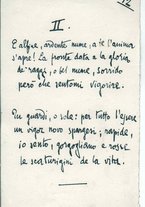 12
II.
E alfine, ardente nume, a te l'anima
s'apre! La fronte data a la gloria
de' raggi, o bel nume, sorrido
però che sentomi vigorire.
Tu guardi, o sole: per tutto l'essere
un vigor novo spargesi; rapide,
io sento, gorgogliano e rosse
le scaturigini de la vita.